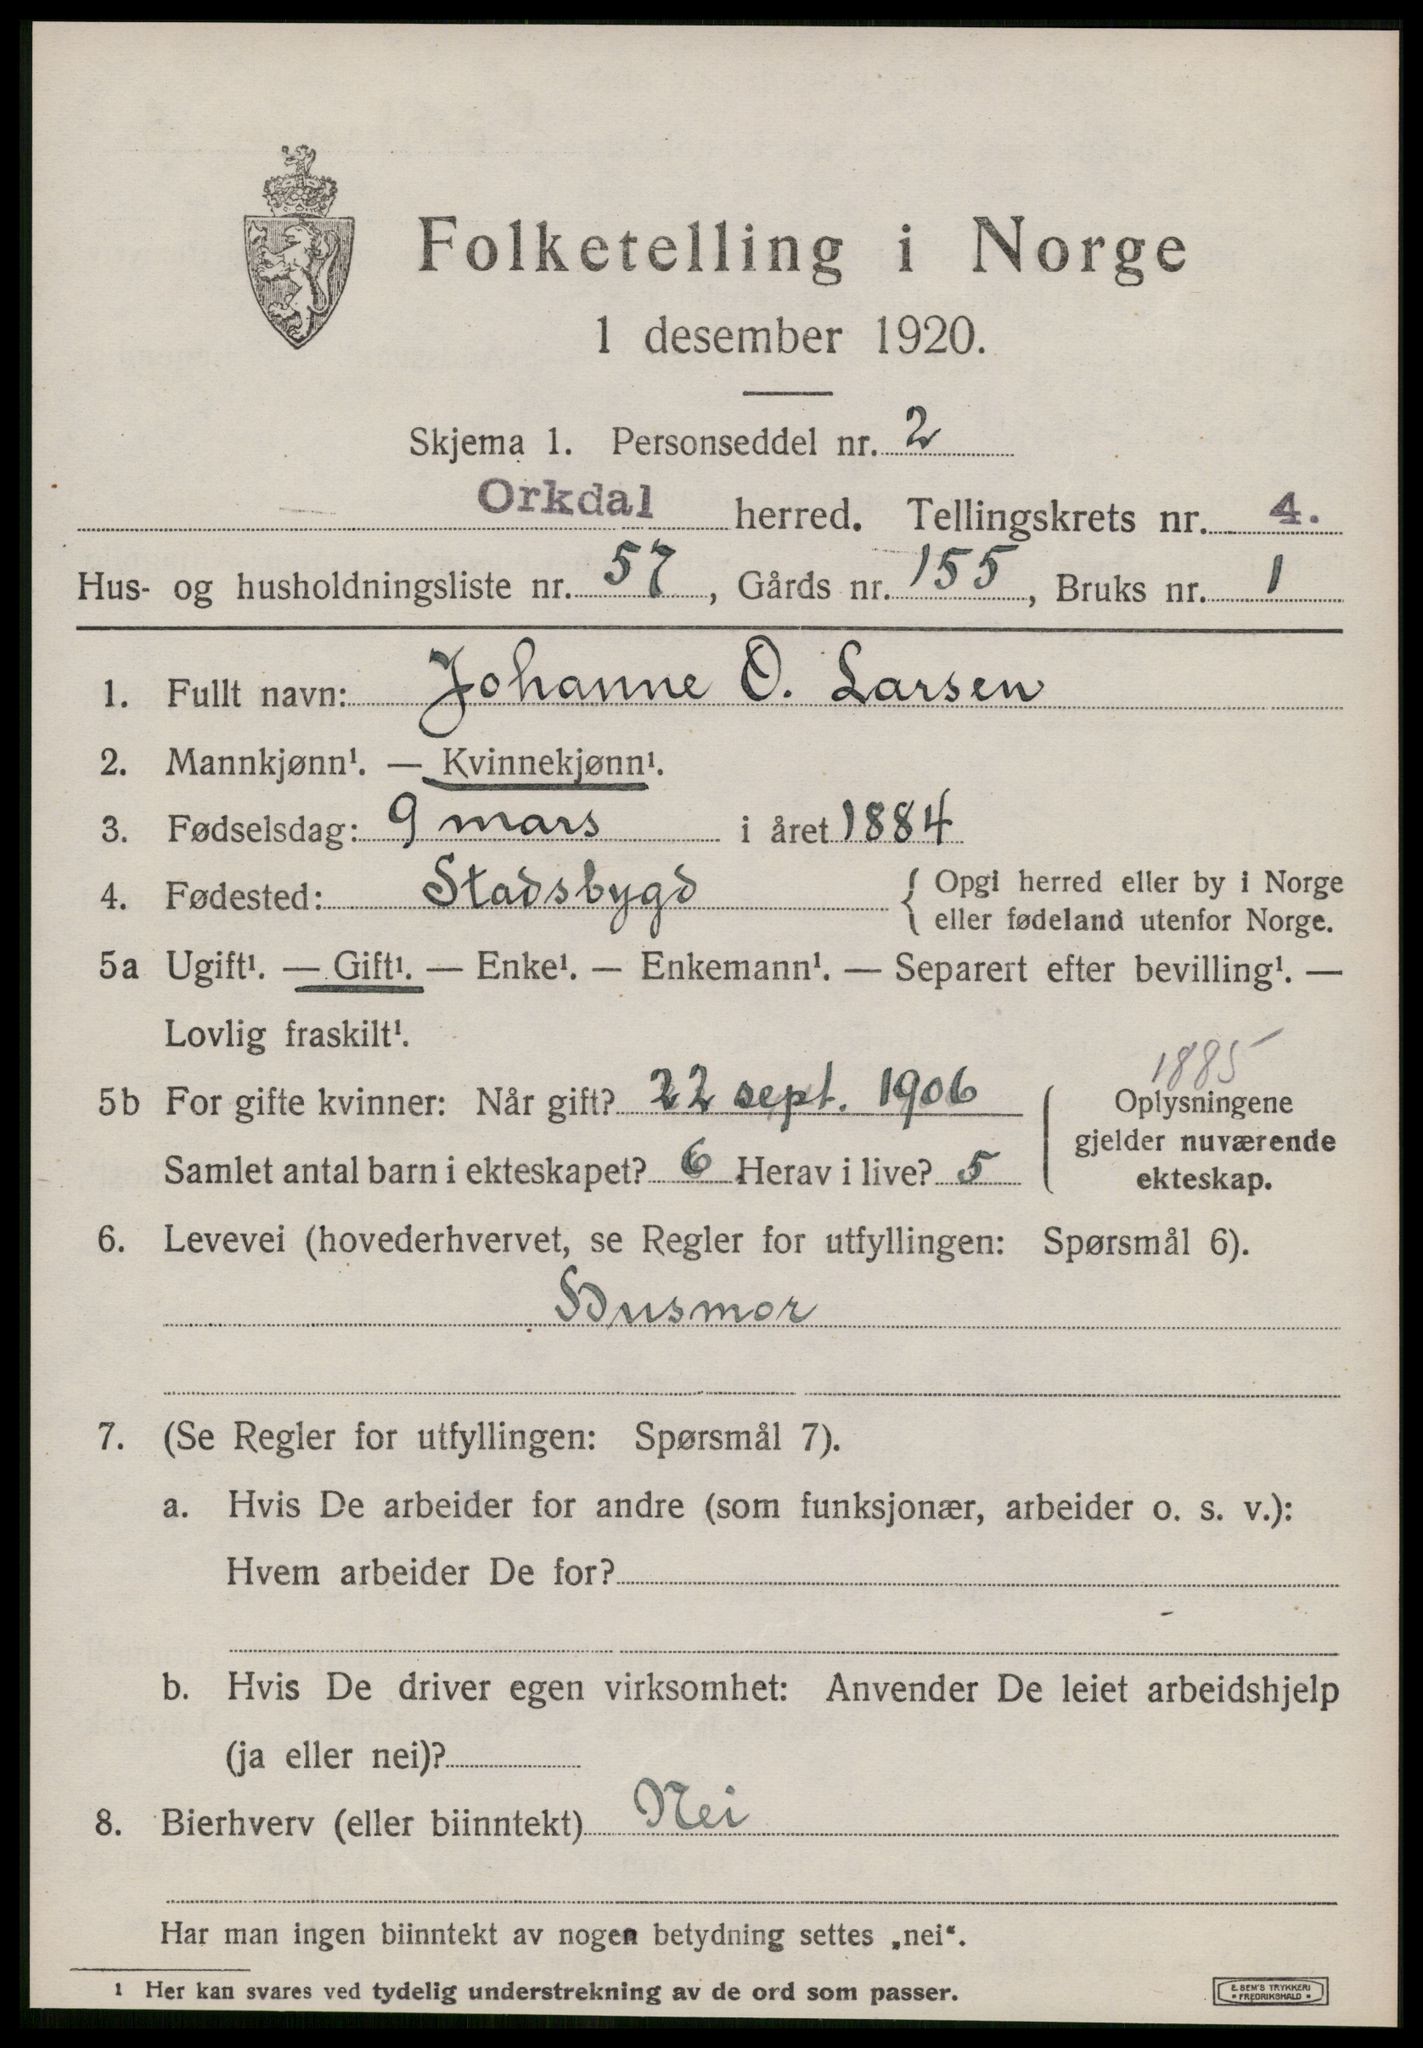 Folketelling i Norge
1 desember 1920.
Skjema 1. Personseddel nr. 2
Orkdal herred. Tellingskrets nr. 4.
Hus- og husholdningsliste nr. 57, Gårds nr. 155, Bruks nr. 1
1. Fullt navn: Johanne O. Larsen
2. Mannkjønn¹. — Kvinnekjønn¹.
3. Fødselsdag: 9 mars i året 1884
4. Fødested: Stadsbygd { Opgi herred eller by i Norge
eller fødeland utenfor Norge.
5a Ugift¹. — Gift¹. — Enke¹. — Enkemann¹. — Separert efter bevilling¹. —
Lovlig fraskilt¹.
1885
5b For gifte kvinner: Når gift? 22 sept. 1906 { Oplysningene
gjelder nuværende
Samlet antal barn i ekteskapet? 6 Herav i live? 5 ekteskap.
6. Levevei (hovederhvervet, se Regler for utfyllingen: Spørsmål 6).
Husmor
7. (Se Regler for utfyllingen: Spørsmål 7).
a. Hvis De arbeider for andre (som funksjonær, arbeider o. s. v.):
Hvem arbeider De for?
b. Hvis De driver egen virksomhet: Anvender De leiet arbeidshjelp
(ja eller nei)?
8. Bierhverv (eller biinntekt) Nei
Har man ingen biinntekt av nogen betydning settes „nei“.
1 Her kan svares ved tydelig understrekning av de ord som passer.
E. SEM'S TRYKKERI
• FREDRIKSHALD •